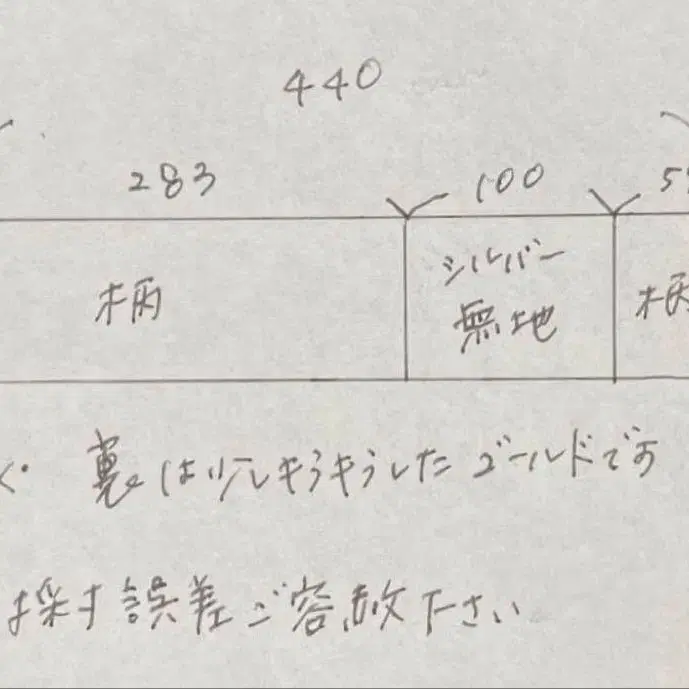 440
283 100
柄 シルバー 柄
無地
裏は少しキラキラしたゴールドです
採す誤差ご容赦下さい